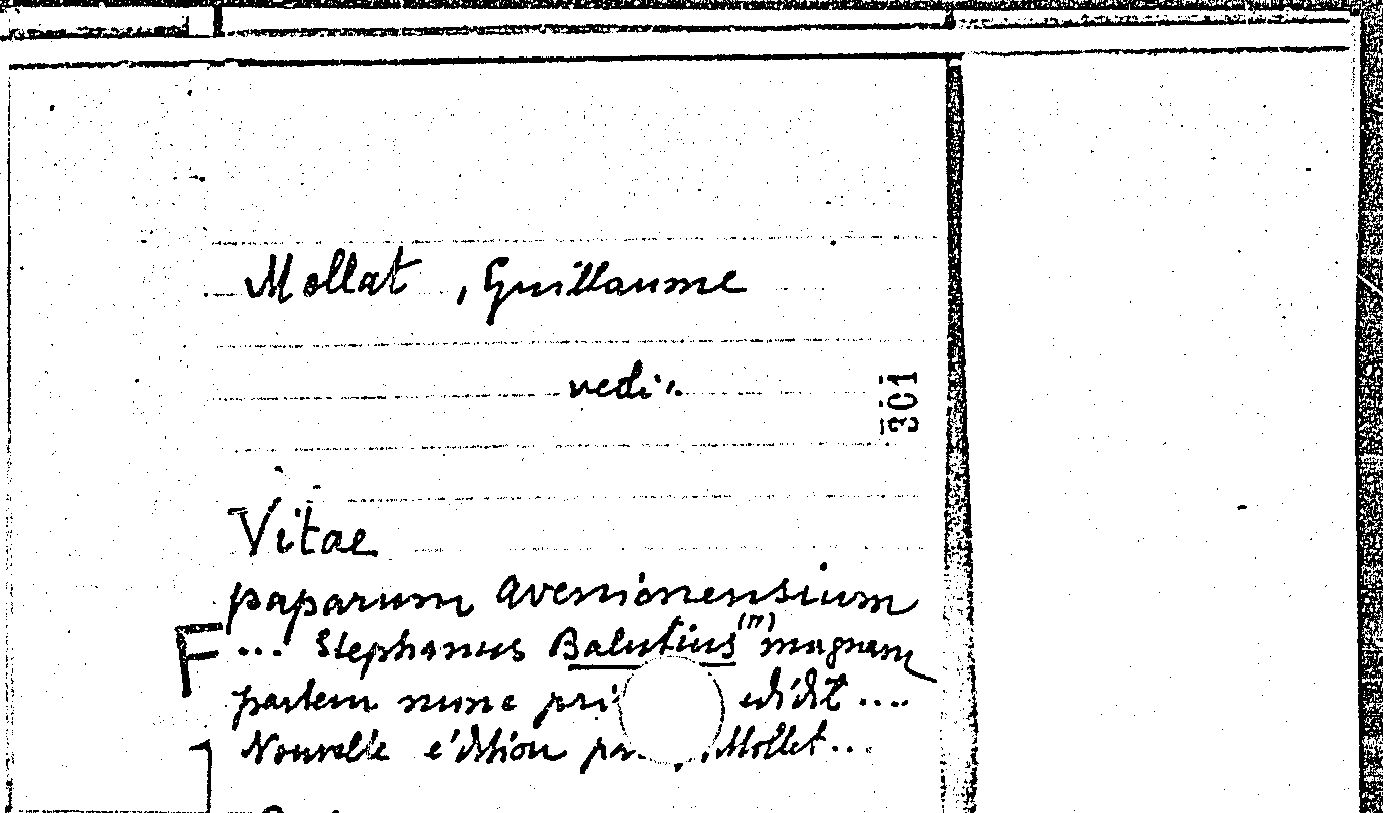 Mollat, Guillaume
vedi:
301
Vitae
paparum avenionensium
... Stephanus Balutius (17) magnam
partem nunc pri edidit ....
Nouvelle édition pa Mollet...